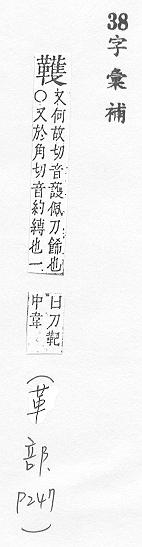 38字彙補
韄
又何故切音護佩刀飾也
○又於角切音約縛也一
曰刀靶
中韋
(革部 P247)